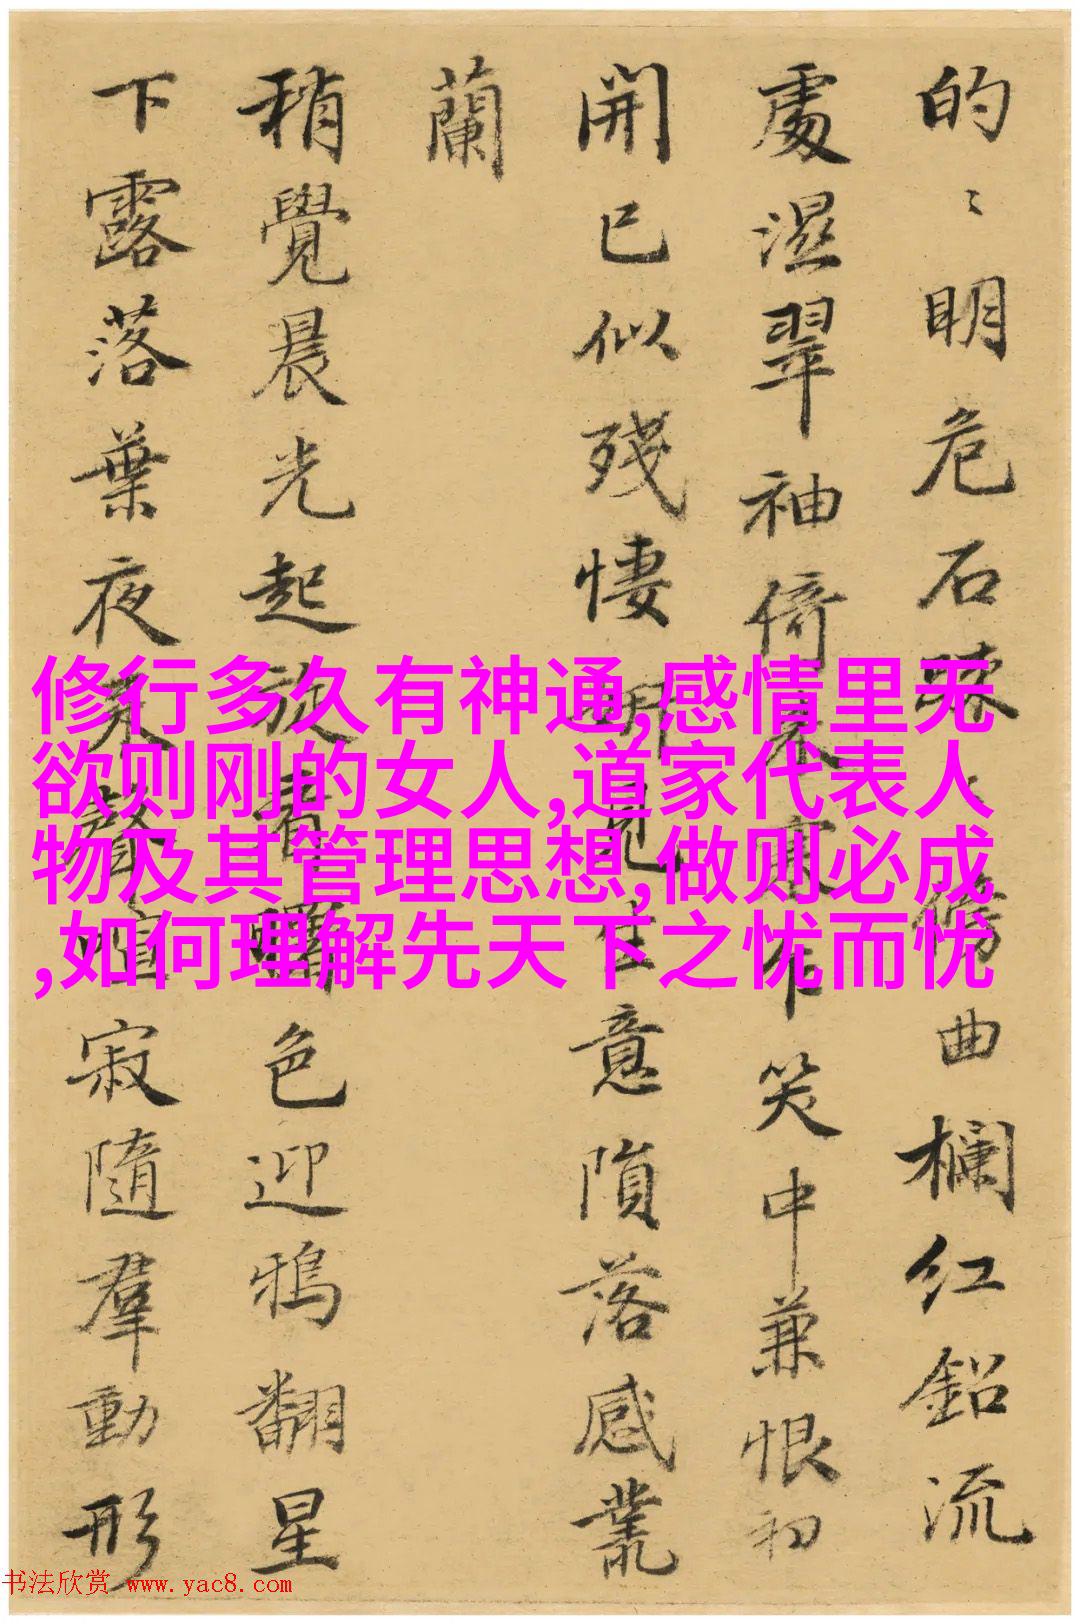 的〻明危石疎〻傍曲欄红鉛流
處濕翠袖倚來寒乍笑中兼恨初
開已似殘悽明見生意隕落感叢
蘭
稍覺晨光起旋看曙色迎鴉翻星
下露落葉夜來聲喧寂隨羣動形
修行多久有神通,感情里无
欲则刚的女人,道家代表人
物及其管理思想,做则必成
,如何理解先天下之忧而忧
书法欣赏 www.yac8.com